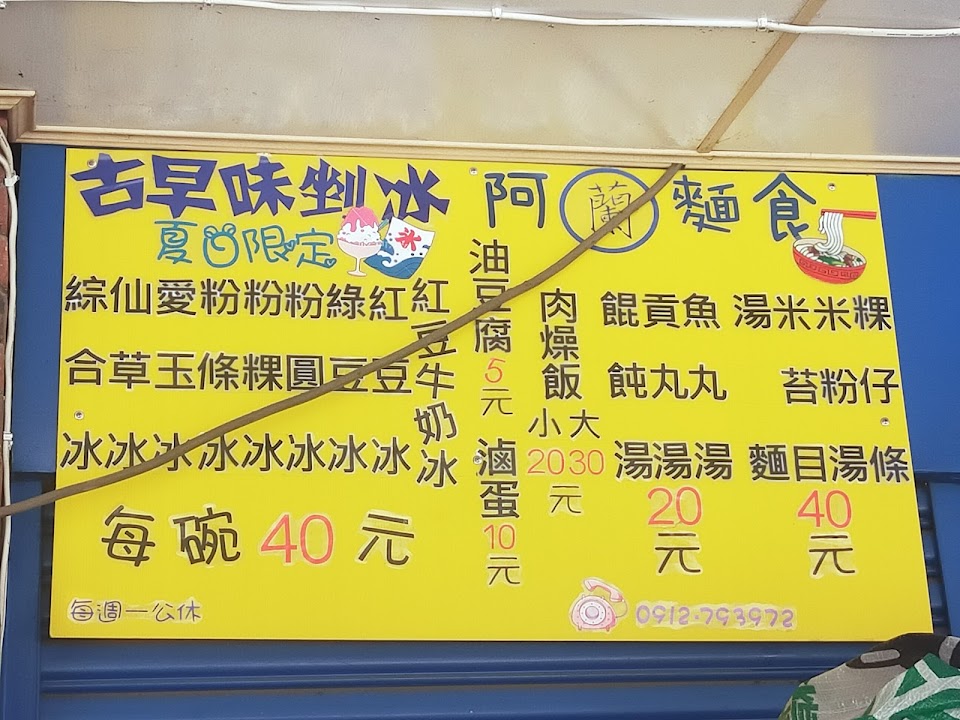 古早味剉冰
夏日限定
冰
紅豆牛奶冰
紅豆冰
綠豆冰
粉圓冰
粉粿冰
粉條冰
愛玉冰
仙草冰
綜合冰
每碗40元
每週一公休
阿蘭麵食
粿仔條
米粉湯
米苔目
湯麵
40元
魚丸湯
貢丸湯
餛飩湯
20元
肉燥飯
小20 大30
元
油豆腐5元
滷蛋10元
0912-793972